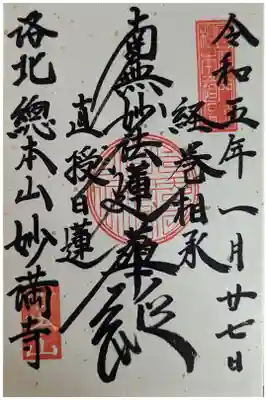 令和五年一月廿七日
経巻相承
南無妙法蓮華経
直授日蓮
洛北 總本山妙満寺